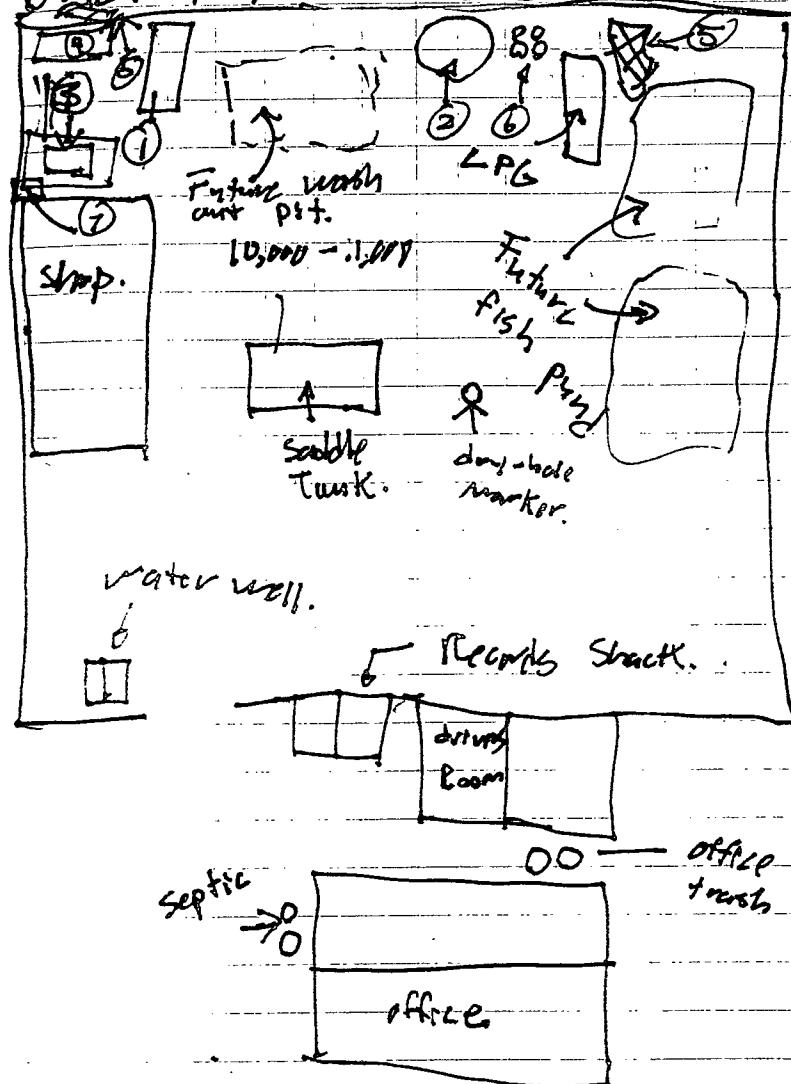 ④
⑤
⑧
①
②
⑥
⑤
LPG
Future wash
out pit.
10,000 - 1,000
⑦
shop.
Future
fish
Pund
saddle
Tank.
dry-hole
marker.
water well.
Records Shack.
drivers
Room
office
trash
septic
office